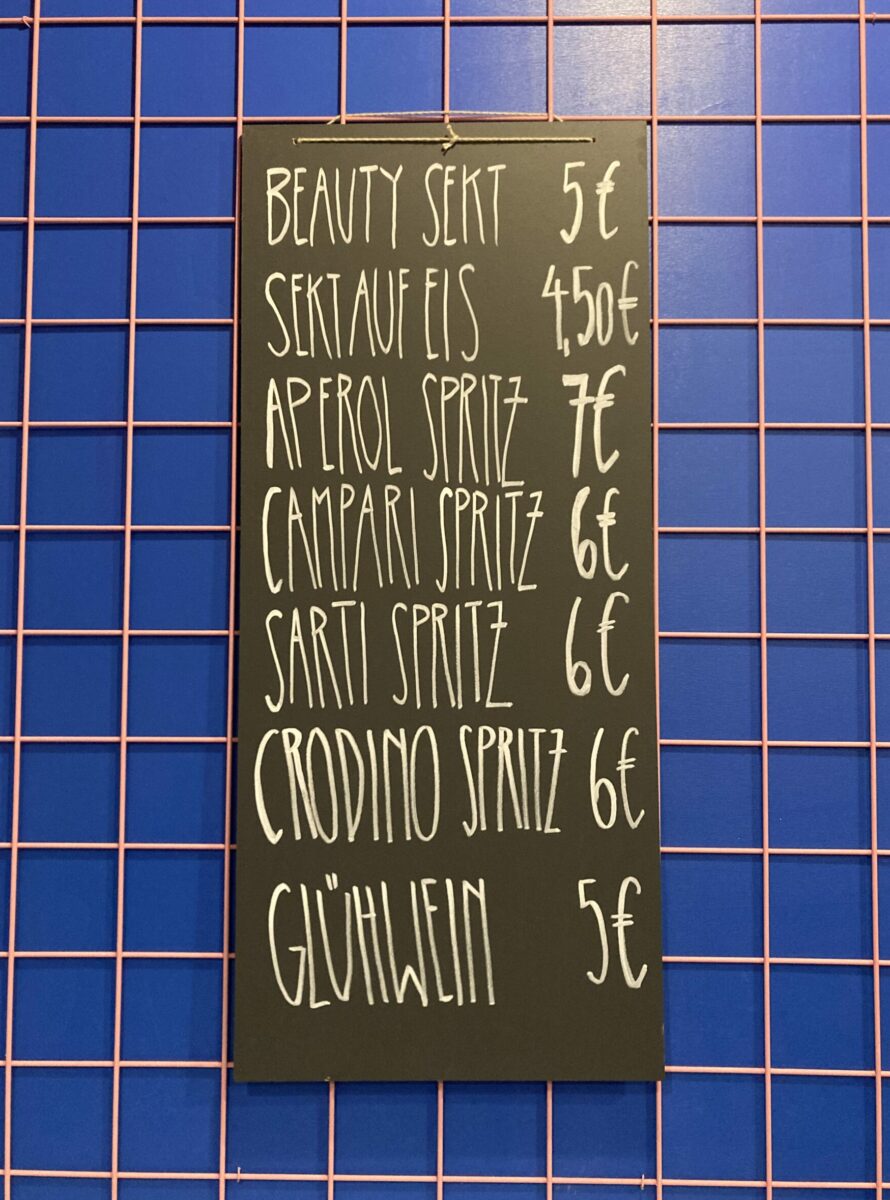 BEAUTY SEKT 5€
SEKT AUF EIS 4,50€
APEROL SPRITZ 7€
CAMPARI SPRITZ 6€
SARTI SPRITZ 6€
CRODINO SPRITZ 6€
GLÜHWEIN 5€